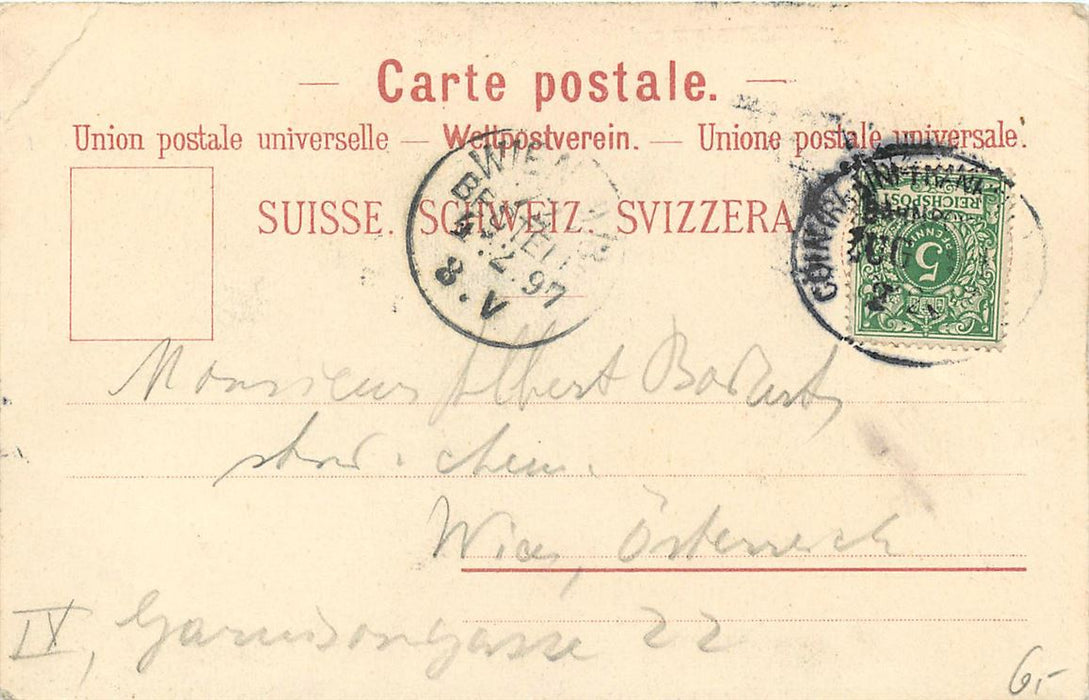 — Carte postale. —
Union postale universelle — Weltpostverein. — Unione postale universale.
SUISSE. SCHWEIZ. SVIZZERA
WIEN
BESTELLT
2.97
8.V
REICHSPOST
5
ZUG
2
Monsieur Albert
stud. chem.
Wien, Österreich
IX, Garnisongasse 22
6,-